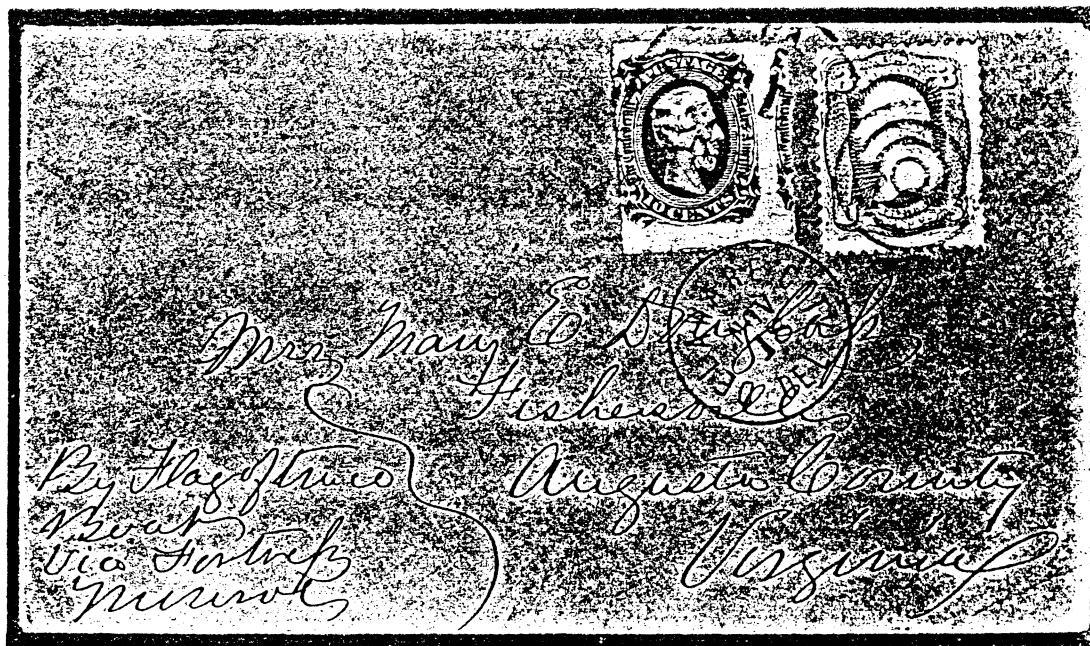 POSTAGE
10 CENTS
3 3
DEL
Mrs Mary E
Fishersville
Augusta County
Virginia
By Flag of truce
Boat
Via Fortress
Munroe